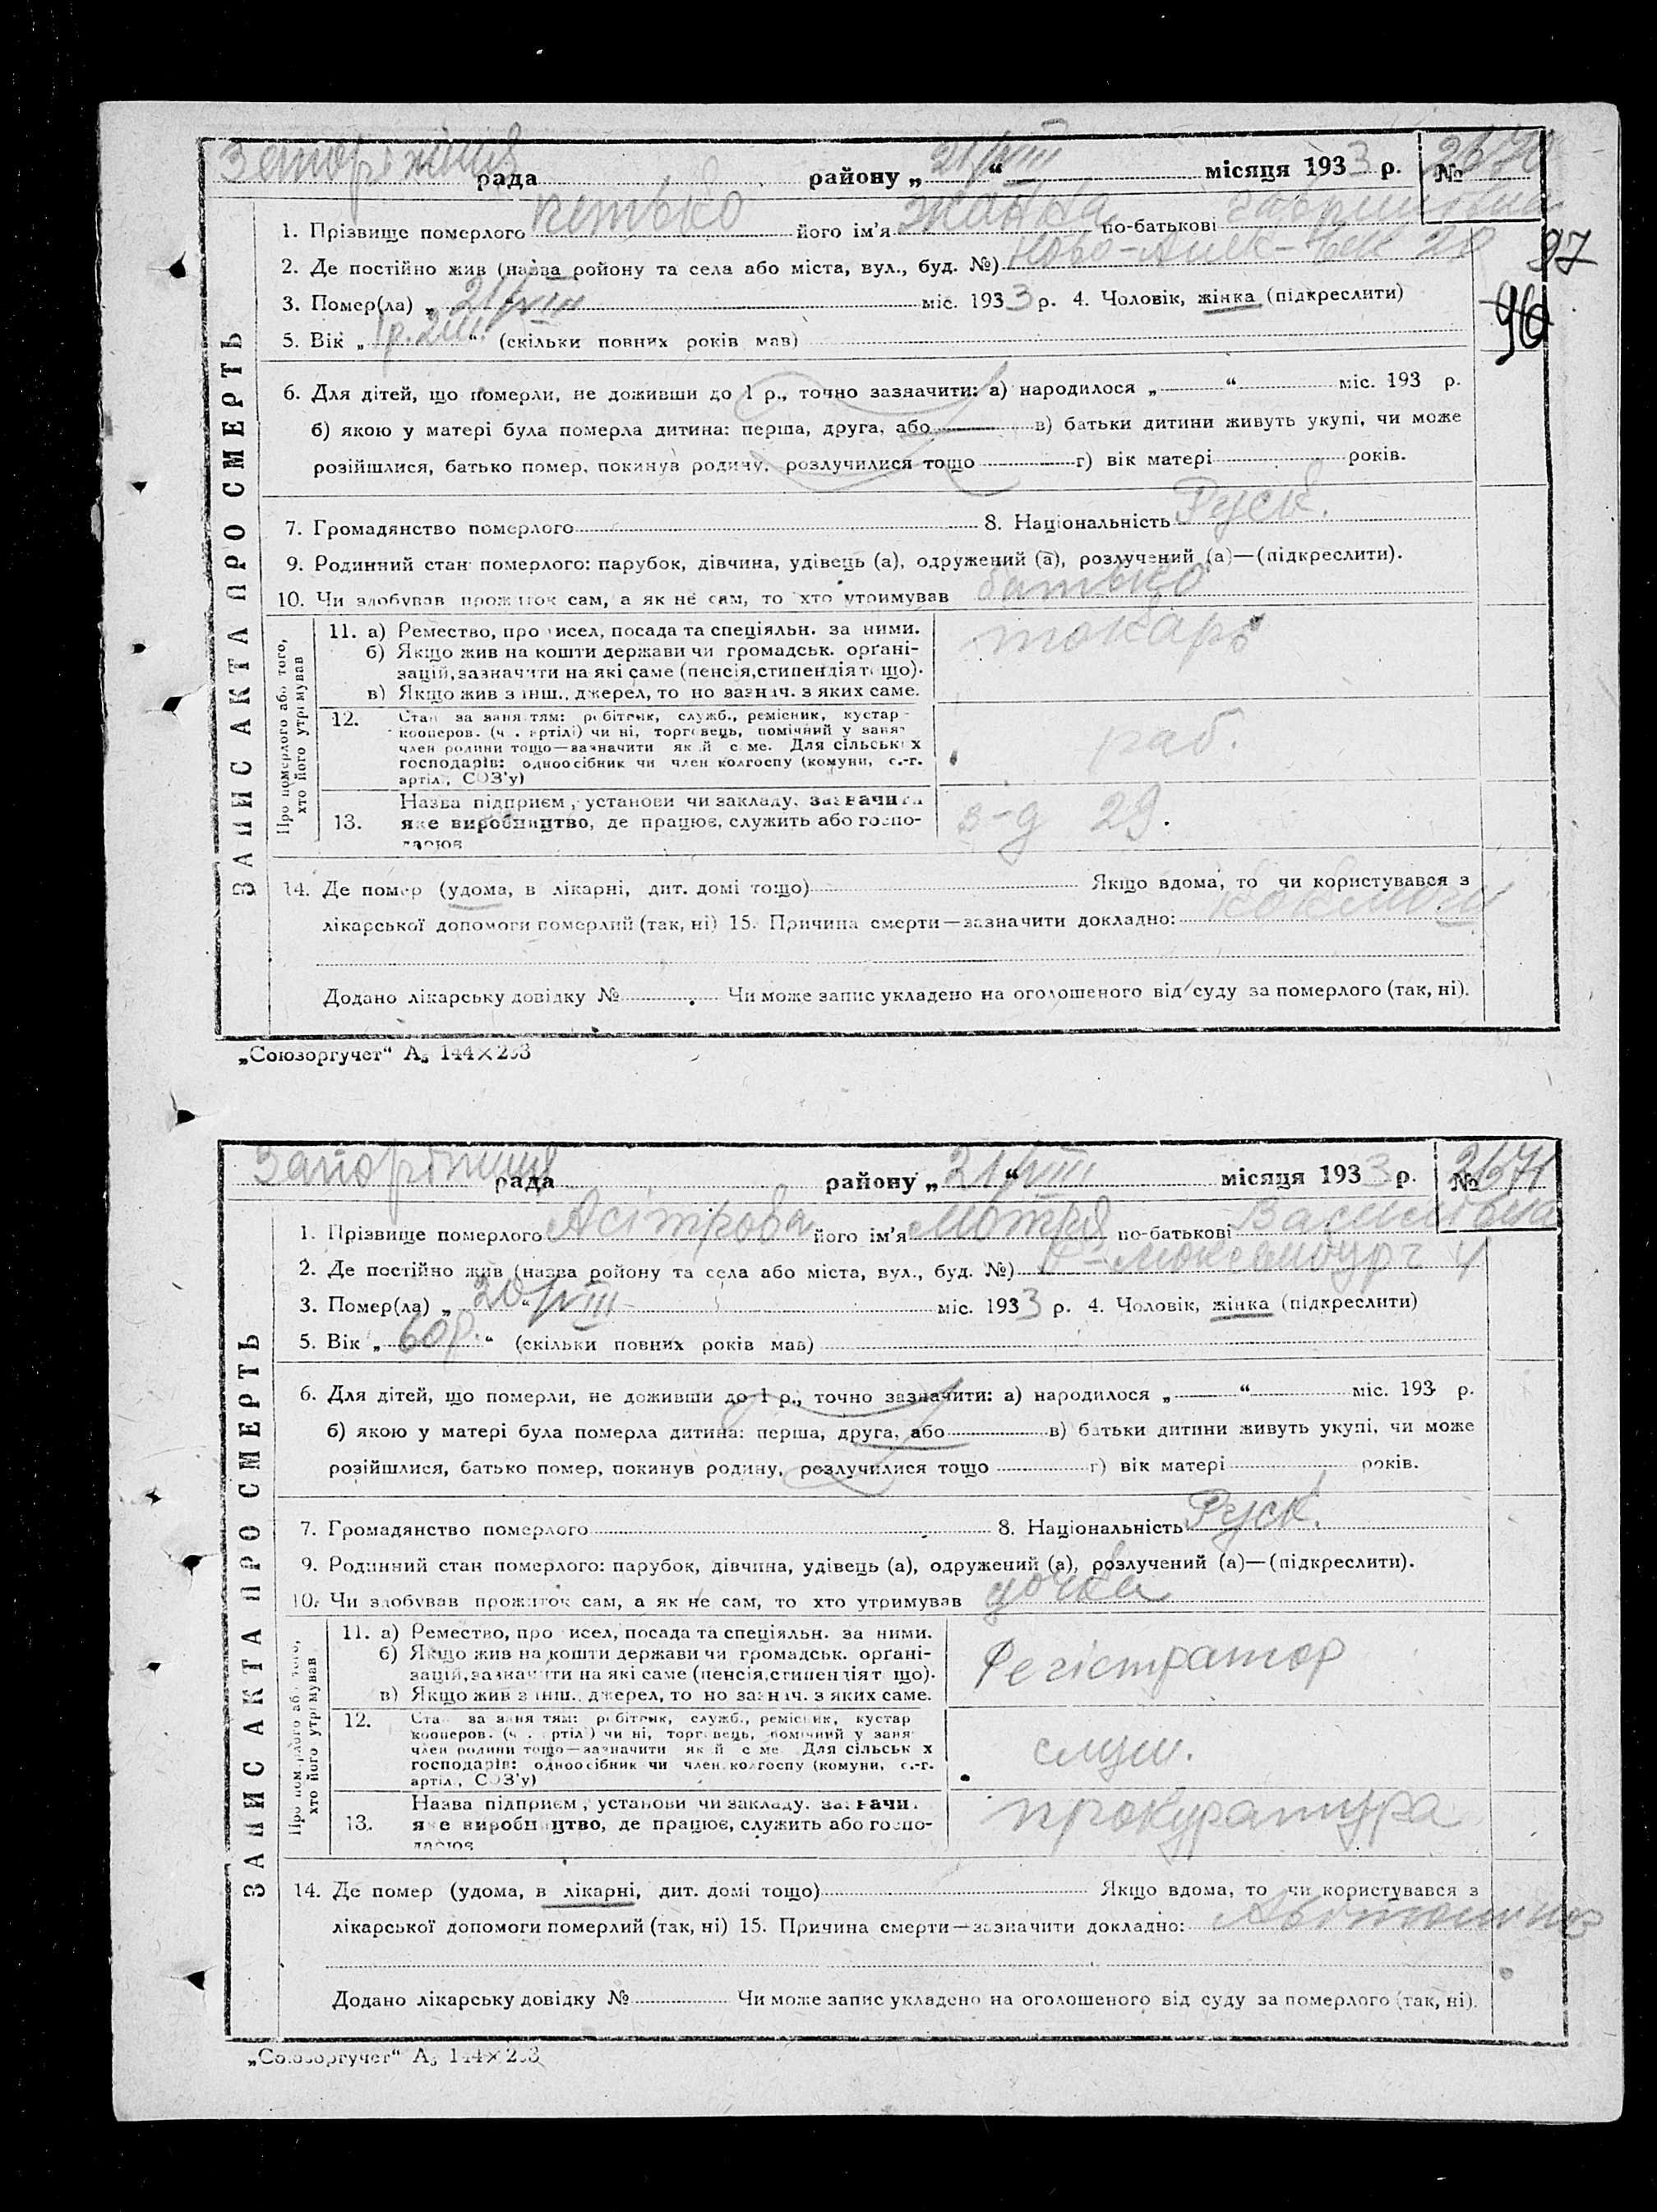 рада району „21/VIII“ місяця 1933 р. № 2670
1. Прізвище померлого Петько його ім'я Жанна по-батькові
2. Де постійно жив (назва ройону та села або міста, вул., буд. №) 20
97
3. Помер(ла) „21/VIII міс. 1933 р. 4. Чоловік, жінка (підкреслити)
96
5. Вік „1р. 2м.“ (скільки повних років мав)
6. Для дітей, що померли, не доживши до 1 р., точно зазначити: а) народилося „ “ міс. 193 р.
б) якою у матері була померла дитина: перша, друга, або в) батьки дитини живуть укупі, чи може
розійшлися, батько помер, покинув родину, розлучилися тощо г) вік матері років.
7. Громадянство померлого 8. Національність Руск.
9. Родинний стан померлого: парубок, дівчина, удівець (а), одружений (а), розлучений (а)—(підкреслити).
10. Чи здобував прожиток сам, а як не сам, то хто утримував батько
ЗАПИС АКТА ПРО СМЕРТЬ
Про померлого або того,
хто його утримував
11. а) Ремество, про исел, посада та спеціяльн. за ними.
б) Якщо жив на кошти держави чи громадськ. орґані-
зацій, зазначити на які саме (пенсія, стипендія тощо).
в) Якщо жив з інш. джерел, то но зазнач. з яких саме.
токарь
12. Стан за заня тям: робітник, служб., ремісник, кустар
кооперов. (ч . артілі) чи ні, торговець, помічний у заня
член родини тощо—зазначити як й с ме. Для сільськ х
господарів: одноосібник чи член колгоспу (комуни, с.-г.
артілі, СОЗ'у)
раб.
13. Назва підприєм , установи чи закладу, зазначити
яке виробництво, де працює, служить або госпо-
дарює
з-д 29.
14. Де помер (удома, в лікарні, дит. домі тощо) Якщо вдома, то чи користувався з
лікарської допомоги померлий (так, ні) 15. Причина смерти—зазначити докладно: коклюш
Додано лікарську довідку № Чи може запис укладено на оголошеного від суду за померлого (так, ні).
„Союзоргучет“ А₅ 144×203
рада району „21/VIII“ місяця 1933 р. № 2671
1. Прізвище померлого Асітрова його ім'я Мотря по-батькові Василівна
2. Де постійно жив (назва ройону та села або міста, вул., буд. №) 4
3. Помер(ла) „20/VIII“ міс. 1933 р. 4. Чоловік, жінка (підкреслити)
5. Вік „60р.“ (скільки повних років мав)
6. Для дітей, що померли, не доживши до 1 р., точно зазначити: а) народилося „ “ міс. 193 р.
б) якою у матері була померла дитина: перша, друга, або в) батьки дитини живуть укупі, чи може
розійшлися, батько помер, покинув родину, розлучилися тощо г) вік матері років.
7. Громадянство померлого 8. Національність Руск.
9. Родинний стан померлого: парубок, дівчина, удівець (а), одружений (а), розлучений (а)—(підкреслити).
10. Чи здобував прожиток сам, а як не сам, то хто утримував дочка
ЗАПИС АКТА ПРО СМЕРТЬ
Про померлого або того,
хто його утримував
11. а) Ремество, про исел, посада та спеціяльн. за ними.
б) Якщо жив на кошти держави чи громадськ. орґані-
зацій, зазначити на які саме (пенсія, стипендія т що).
в) Якщо жив з інш. джерел, то но зазнач. з яких саме.
Регістратор
12. Ста за заня тям: робітник, служб., ремісник, кустар
кооперов. (ч . ртілі) чи ні, торговець, помічний у заня
член родини тощо—зазначити як й с ме Для сільськ х
господарів: одноосібник чи член колгоспу (комуни, с.-г.
артілі, СОЗ'у)
служ.
13. Назва підприєм , установи чи закладу, зазначи
яке виробництво, де працює, служить або госпо-
дарює
прокуратура
14. Де помер (удома, в лікарні, дит. домі тощо) Якщо вдома, то чи користувався з
лікарської допомоги померлий (так, ні) 15. Причина смерти—зазначити докладно:
Додано лікарську довідку № Чи може запис укладено на оголошеного від суду за померлого (так, ні).
„Союзоргучет“ А₅ 144×203